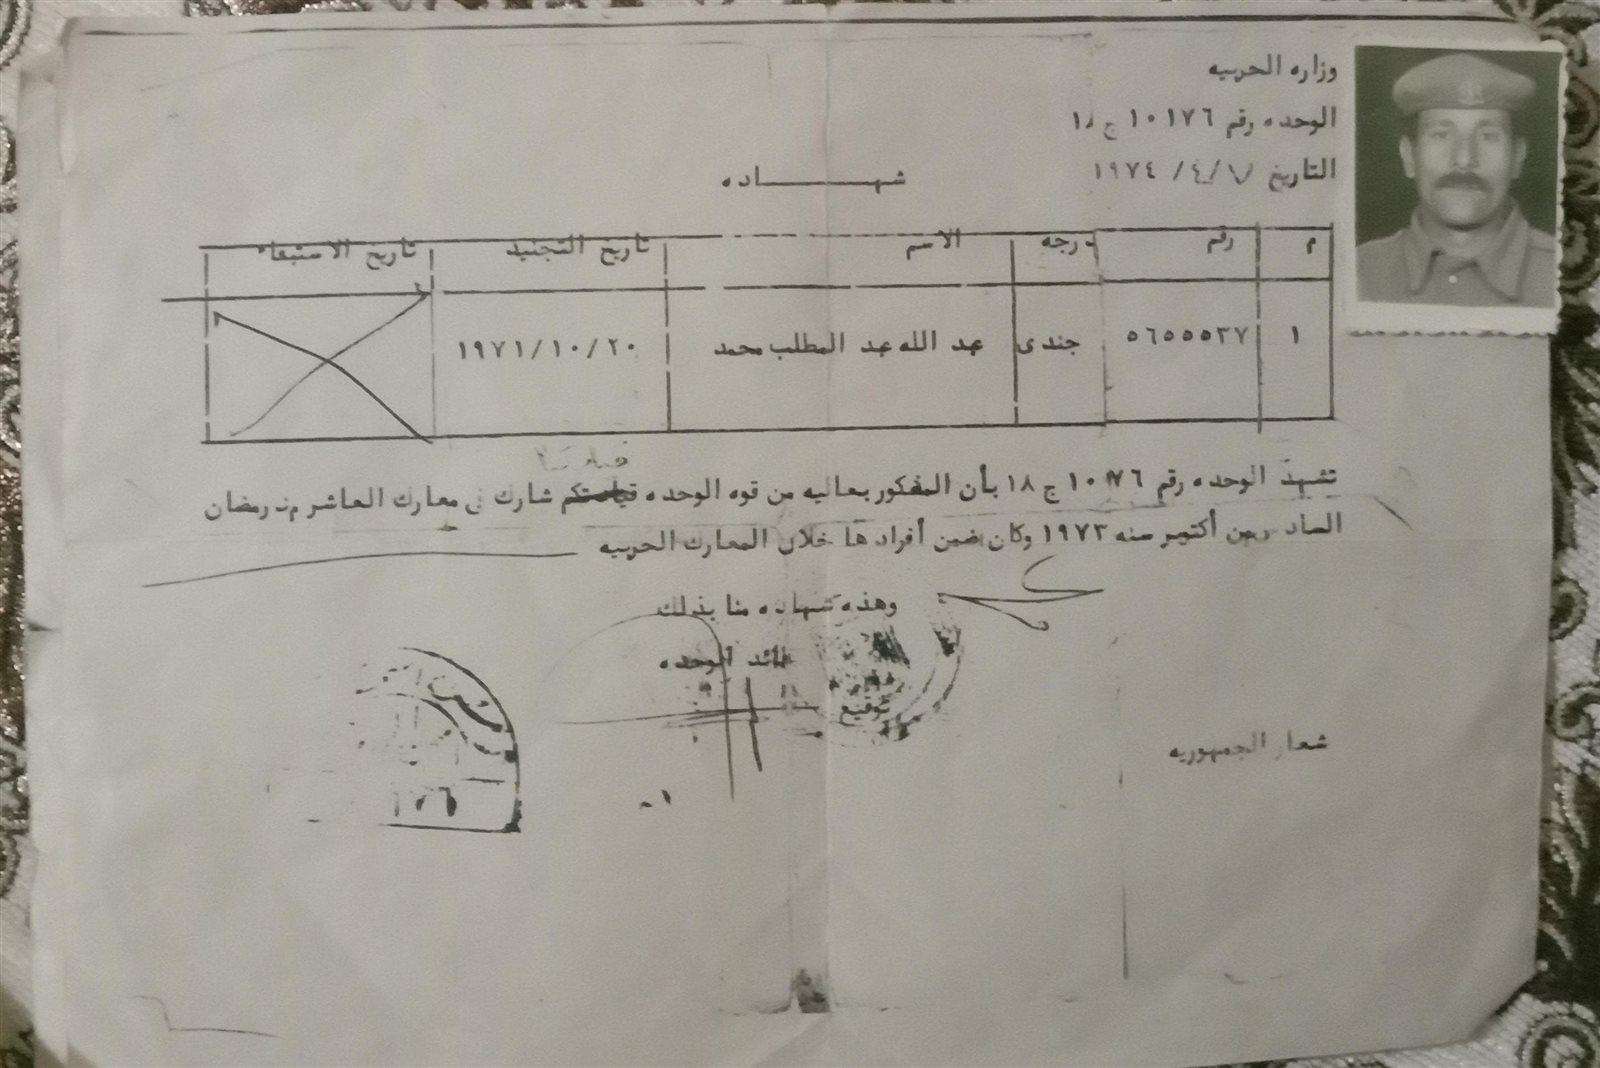 وزاره الحربيه
الوحده رقم ١٠١٧٦ ج ١٨
التاريخ ٧ /٤ / ١٩٧٤
شهـــــــــاده
م رقم درجه الاسم تاريخ التجنيد تاريخ الاستبقاء
١ ٥٦٥٥٥٣٧ جندى عبد الله عبد المطلب محمد ٢٠ /١٠ /١٩٧١
تشهد الوحده رقم ١٠١٧٦ ج ١٨ بأن المذكور بعاليه من قوه الوحده شارك فى معارك العاشر من رمضان
السادس من أكتوبر سنه ١٩٧٣ وكان ضمن أفرادها خلال المعارك الحربيه
وهذه شهاده منا بذلك
قائد الوحده
توقيع
شعار الجمهوريه